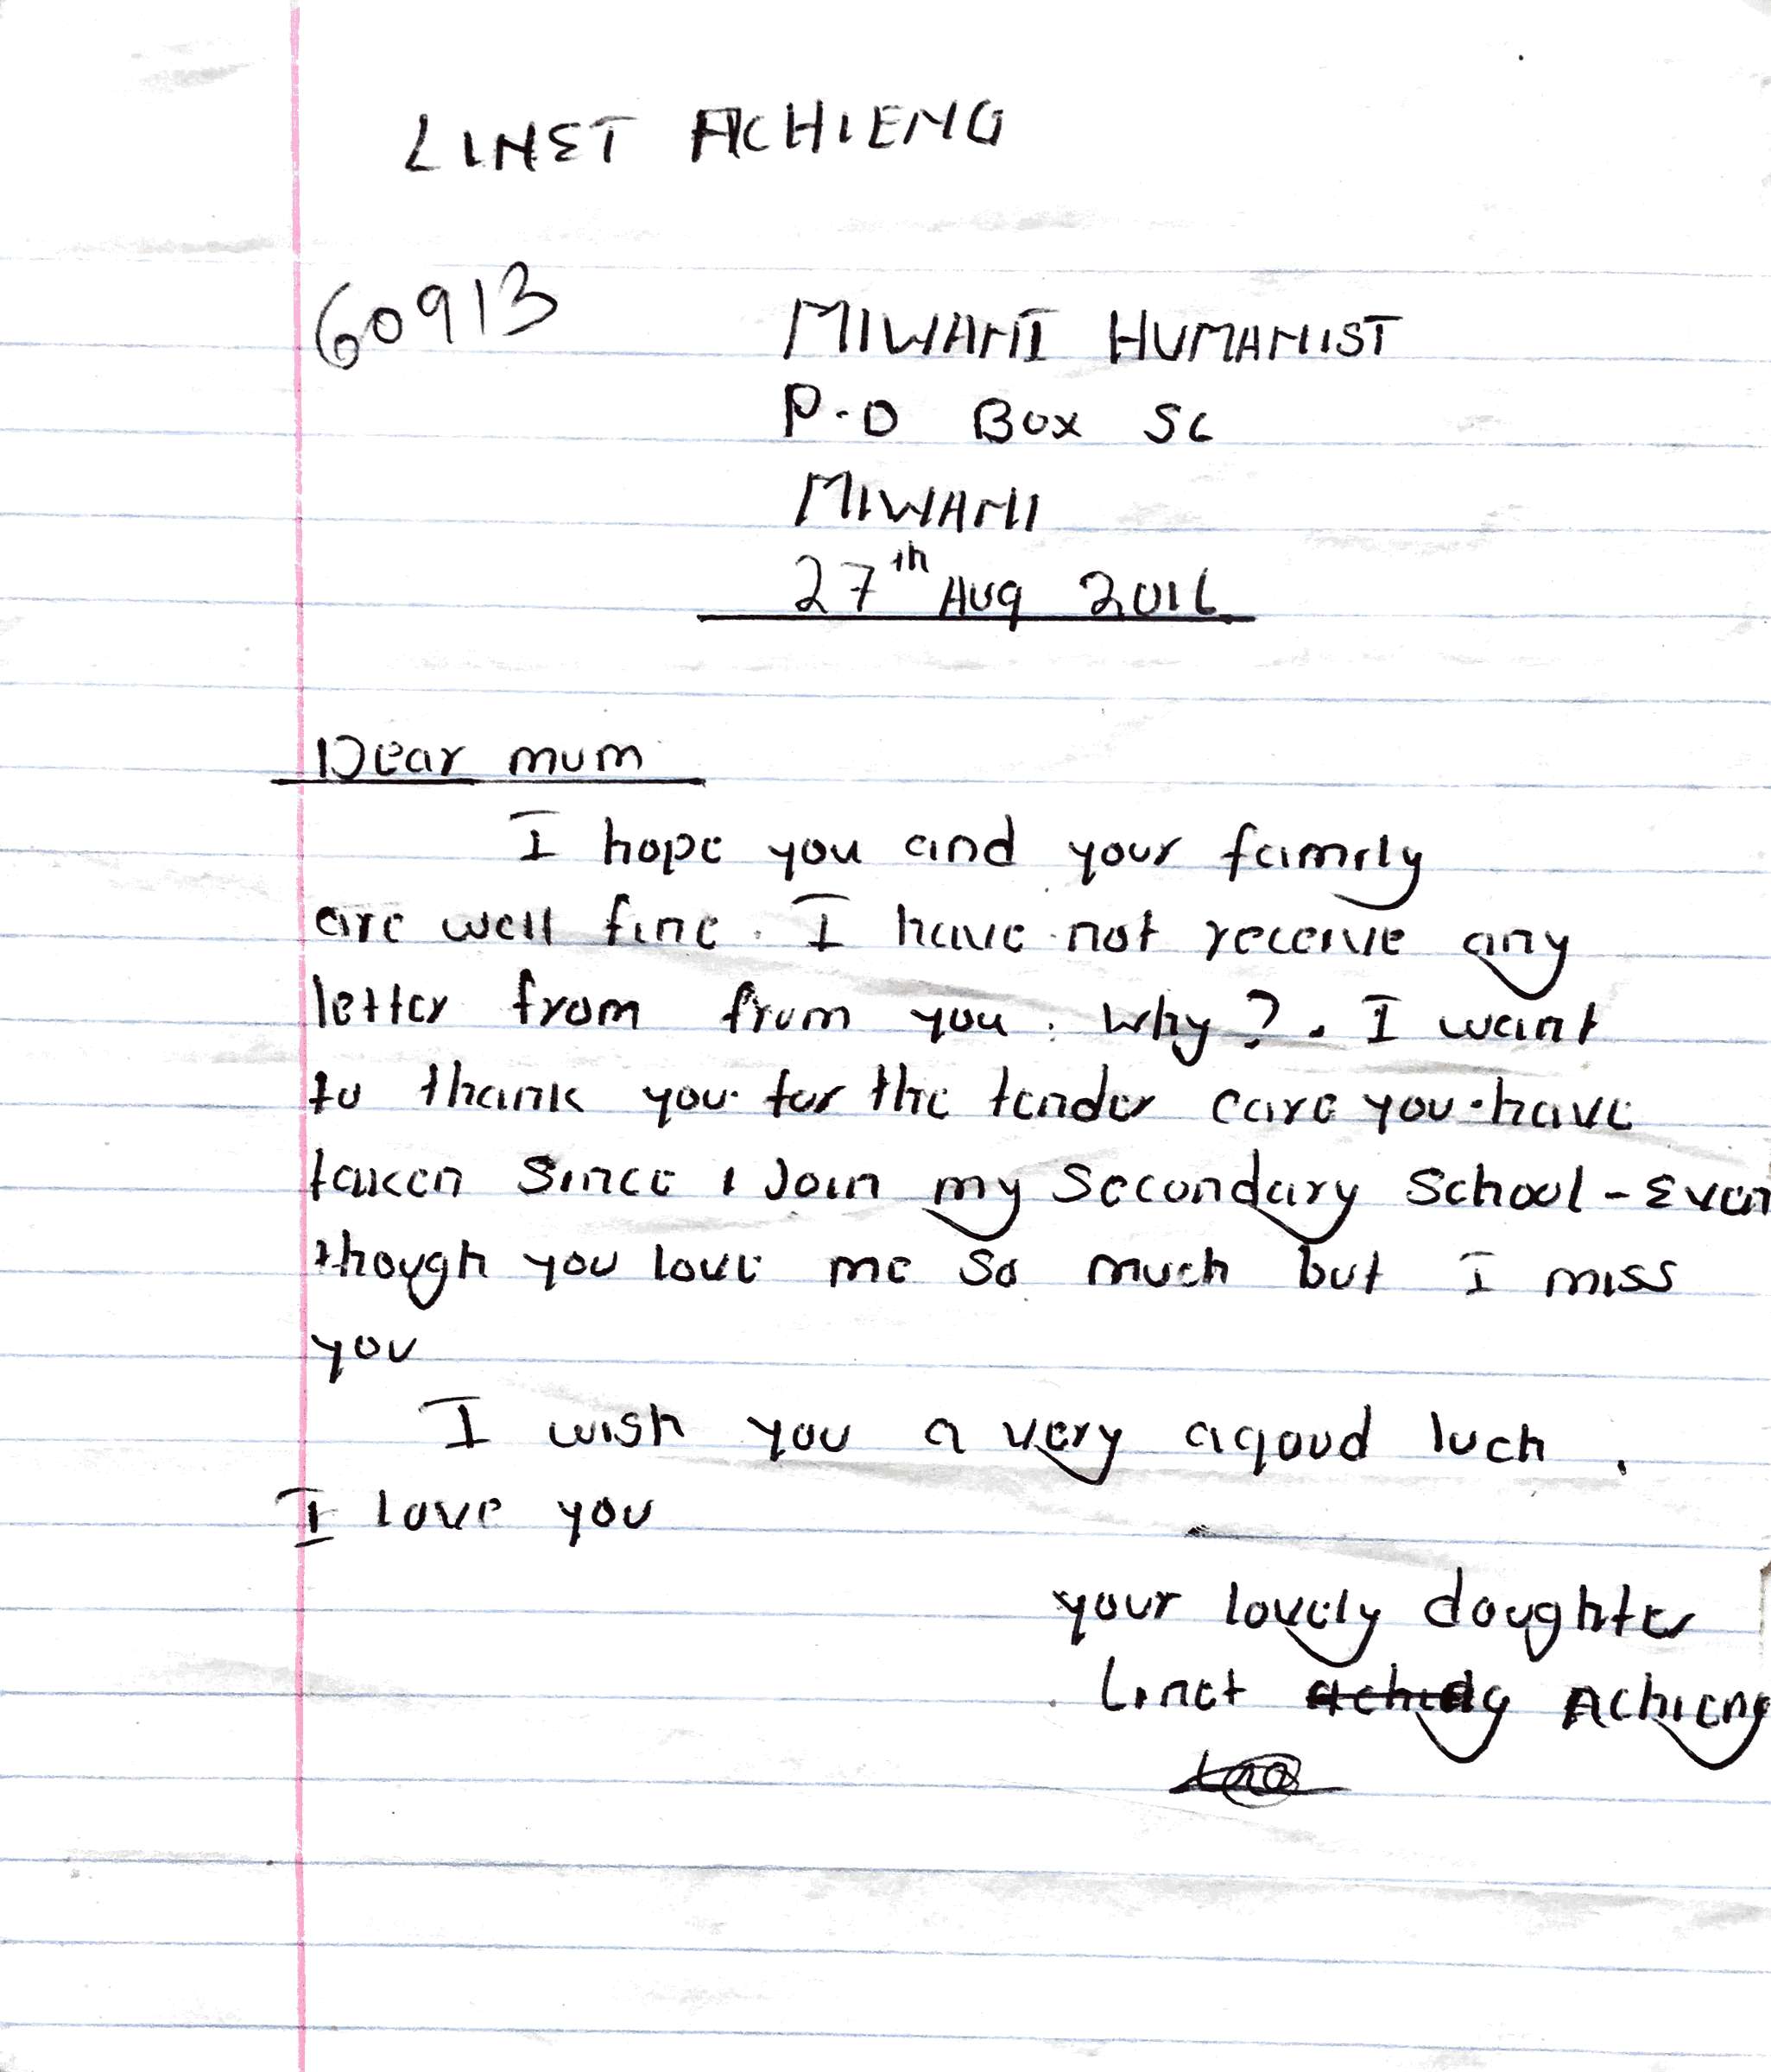 LINET ACHIENG
60913
MIWANI HUMANIST
P.O Box 56
MIWANI
27th Aug 2016
Dear mum
I hope you and your family
are well fine. I have not receive any
letter from from you. Why?. I want
to thank you for the tender care you have
taken since i Join my Secondary School - Even
though you love me so much but I miss
you
I wish you a very agood luch.
I love you
your lovely doughter
Linet Achieng